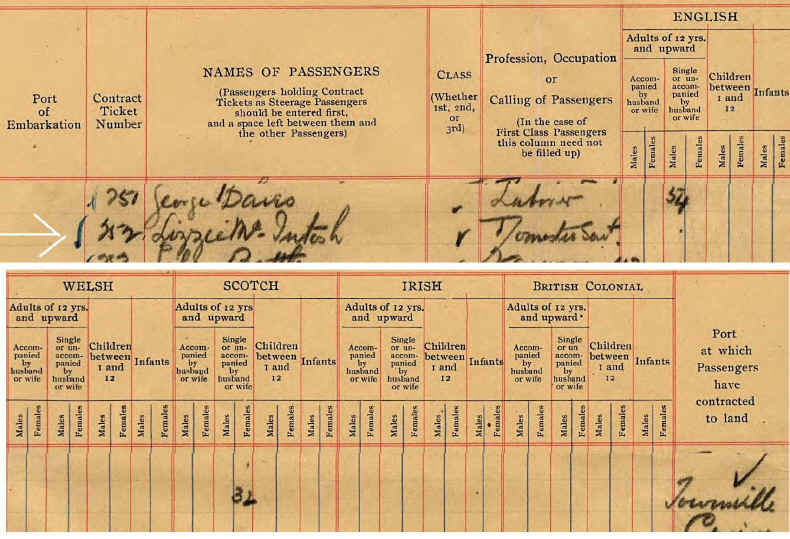 ENGLISH
Port
of
Embarkation
Contract
Ticket
Number
NAMES OF PASSENGERS
(Passengers holding Contract
Tickets as Steerage Passengers
should be entered first,
and a space left between them and
the other Passengers)
CLASS
(Whether
1st, 2nd,
or
3rd)
Profession, Occupation
or
Calling of Passengers
(In the case of
First Class Passengers
this column need not
be filled up)
Adults of 12 yrs.
and upward
Accom-
panied
by
husband
or wife
Single
or un-
accom-
panied
by
husband
or wife
Children
between
1 and
12
Infants
Males Females Males Females Males Females Males Females
251 George Davies Labourer 54
252 Lizzie Mc Intosh Domestic Servt.
WELSH
SCOTCH
IRISH
BRITISH COLONIAL
Adults of 12 yrs.
and upward
Accom-
panied
by
husband
or wife
Single
or un-
accom-
panied
by
husband
or wife
Children
between
1 and
12
Infants
Adults of 12 yrs
and upward
Accom-
panied
by
husband
or wife
Single
or un-
accom-
panied
by
husband
or wife
Children
between
1 and
12
Infants
Adults of 12 yrs.
and upward
Accom-
panied
by
husband
or wife
Single
or un-
accom-
panied
by
husband
or wife
Children
between
1 and
12
Infants
Adults of 12 yrs.
and upward
Accom-
panied
by
husband
or wife
Single
or un
accom-
panied
by
husband
or wife
Children
between
1 and
12
Infants
Port
at which
Passengers
have
contracted
to land
Males Females Males Females Males Females Males Females
Males Females Males Females Males Females Males Females
Males Females Males Females Males Females Males Females
Males Females Males Females Males Females Males Females
32 Townsville